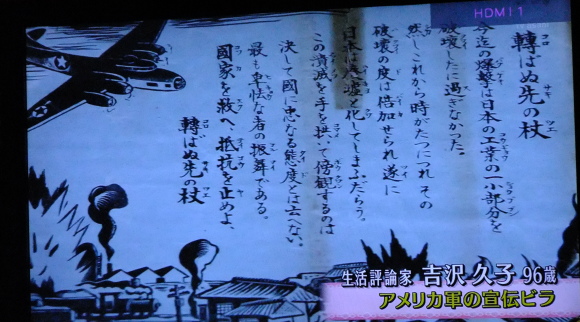 HDMI1
轉ばぬ先の杖
今迄の爆撃は日本の工業の一小部分を
破壊したに過ぎなかった。
然しこれから時がたつにつれ、その
破壊の度は倍加せられ遂に
日本は廃墟と化してしまふだらう。
この潰滅を手を拱いて傍観するのは
決して國に忠なる態度とは云へない。
最も卑怯な者の振舞である。
國家を救へ、抵抗を止めよ、
轉ばぬ先の杖
生活評論家 吉沢久子 96歳
アメリカ軍の宣伝ビラ